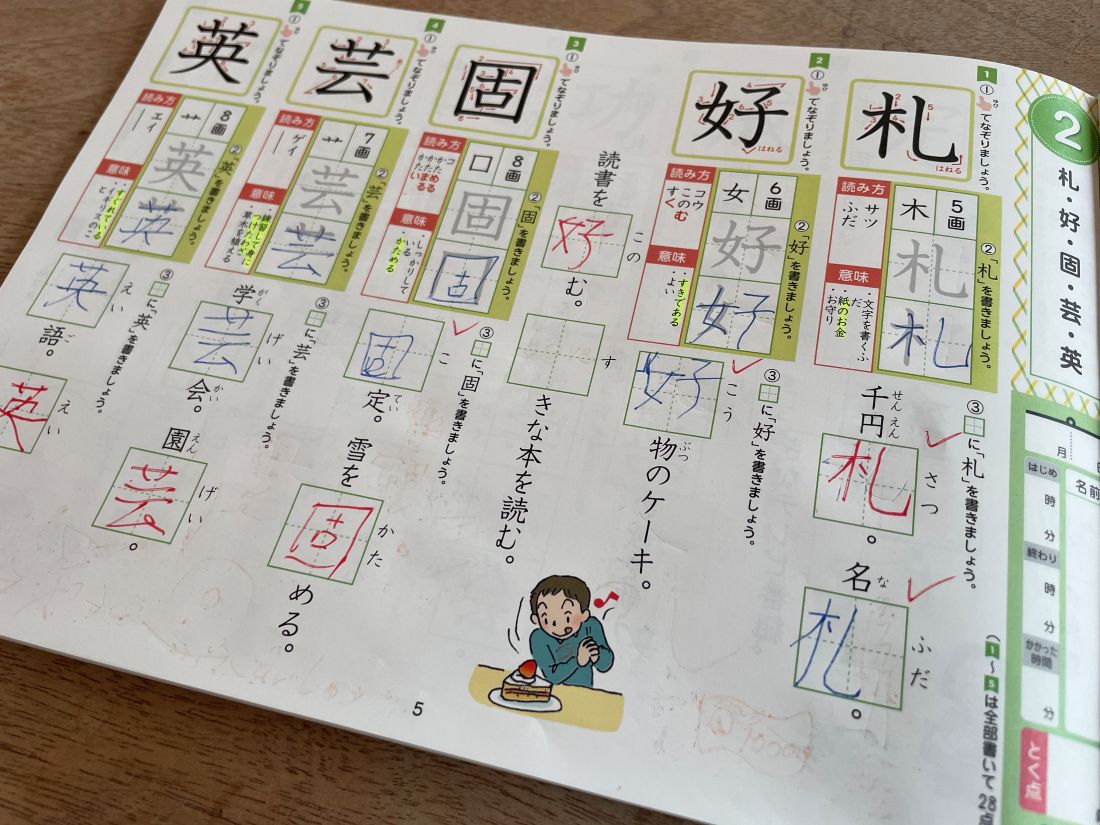 2
札・好・固・芸・英
月
はじめ
時
分
終わり
時
分
かかった時間
分
名前
とく点
1
①
てなぞりましょう。
札
はねる
②「札」を書きましょう。
5画
木
札
札
読み方
サツ
ふだ
意味
・文字を書くふだ
・紙のお金
・お守り
③
に「札」を書きましょう。
千円札。
せんえん
さつ
名札。
な
ふだ
(1〜5は全部書いて28点
2
①
てなぞりましょう。
好
はねる
②「好」を書きましょう。
6画
女
好
好
読み方
コウ
このむ
すく
意味
・すきである
・よい
③
に「好」を書きましょう。
好物のケーキ。
こう
ぶつ
きな本を読む。
す
読書を好む。
この
3
①
てなぞりましょう。
固
②「固」を書きましょう。
8画
囗
固
固
読み方
コ
かためる
かたまる
かたい
意味
・しっかりしている
・かためる
③
に「固」を書きましょう。
固定。
こ
てい
雪を固める。
かた
4
①
てなぞりましょう。
芸
②「芸」を書きましょう。
7画
艹
芸
芸
読み方
ゲイ
意味
・練習して身につけたわざ
・草木を植える
③
に「芸」を書きましょう。
学芸会。
がく
げい
かい
園芸。
えん
げい
5
①
てなぞりましょう。
英
②「英」を書きましょう。
8画
艹
英
英
読み方
エイ
意味
・すぐれている
・イギリスのこと
③
に「英」を書きましょう。
英語。
えい
ご
英
えい
5